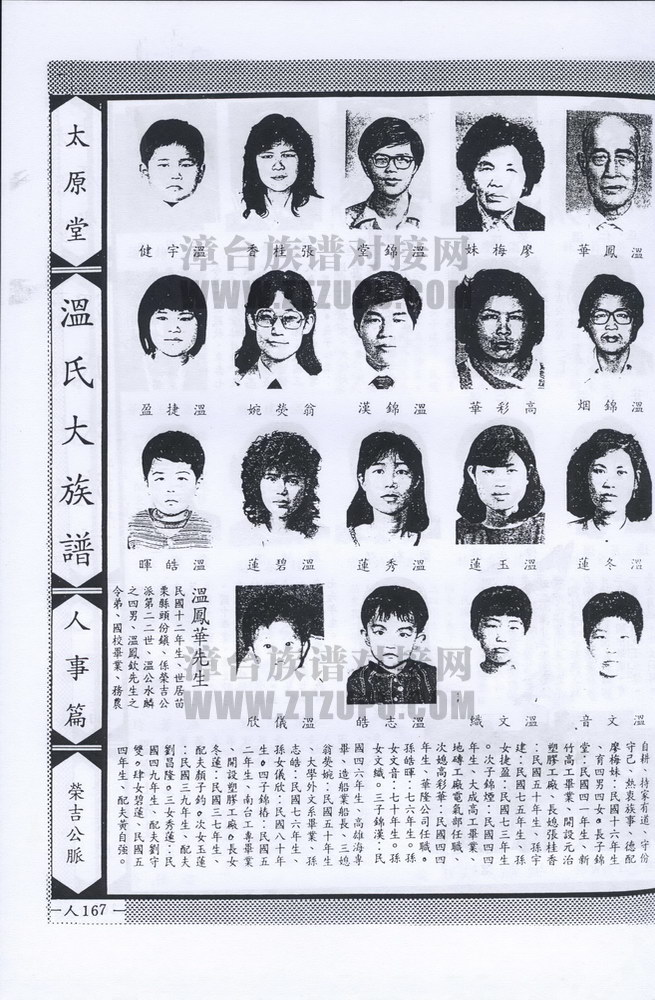 太原堂
溫氏大族譜
人事篇
榮吉公脈
人167
溫鳳華
廖梅妹
溫錦堂
張桂香
溫宇健
溫錦烟
高彩華
溫錦漢
翁熒婉
溫捷盈
溫冬蓮
溫玉蓮
溫秀蓮
溫碧蓮
溫皓暉
溫文音
溫文織
溫志皓
溫儀欣
溫鳳華先生
民國十二年生、世居苗
栗縣頭份鎮、係榮吉公
派第二二世、溫公水麟
之四男、溫鳳欽先生之
令弟、國校畢業、務農
自耕、持家有道、守份
守己、熱衷族事。德配
廖梅妹:民國十六年生
、育四男四女。長子錦
堂:民國四一年生、新
竹高工畢業、開設元治
塑膠工廠、長媳張桂香
:民國五十年生、孫宇
建:民國七五年生、孫
女捷盈:民國七三年生
。次子錦煙:民國四四
年生、大成高工畢業、
地磚工廠電氣部任職、
次媳高彩華:民國四四
年生、華隆公司任職。
孫皓暉:七六年生。孫
女文音:七十年生。孫
女文織。三子錦漢:民
國四六年生、高雄海專
畢、造船業船長、三媳
翁熒婉:民國五十年生
、大學外文系畢業、孫
志皓:民國七六年生、
孫女儀欣:民國八十年
生。四子錦樁:民國五
二年生、南台工專畢業
、開設塑膠工廠。長女
冬蓮:民國三七年生、
配夫顏子鈞。次女玉蓮
:民國三九年生、配夫
劉昌隆。三女秀蓮:民
國四九年生、配夫劉守
雙。肆女碧蓮、民國五
四年生、配夫黃自強。
漳台族谱对接网
WWW.ZTZUPU.COM
漳台族谱对接网
WWW.ZTZUPU.COM